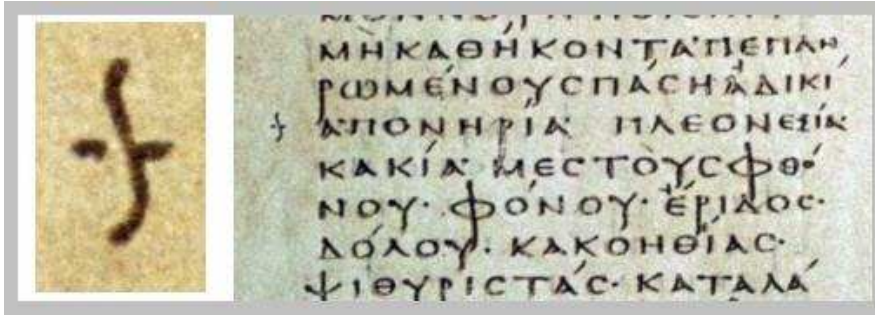 ΜῊΚΑΘΉΚΟΝΤΑΠΕΠΛΗ
ΡΩΜΈΝΟΥϹΠΆϹΗἈΔΙΚΙ
ΑΠΟΝΗΡΊΑ ΠΛΕΟΝΕΞΊΑ
ΚΑΚΊΑ ΜΕϹΤΟῪϹΦΘΌ
ΝΟΥ· ΦΌΝΟΥ· ἜΡΙΔΟϹ·
ΔΌΛΟΥ· ΚΑΚΟΗΘΊΑϹ·
ΨΙΘΥΡΙϹΤΆϹ· ΚΑΤΑΛΆ